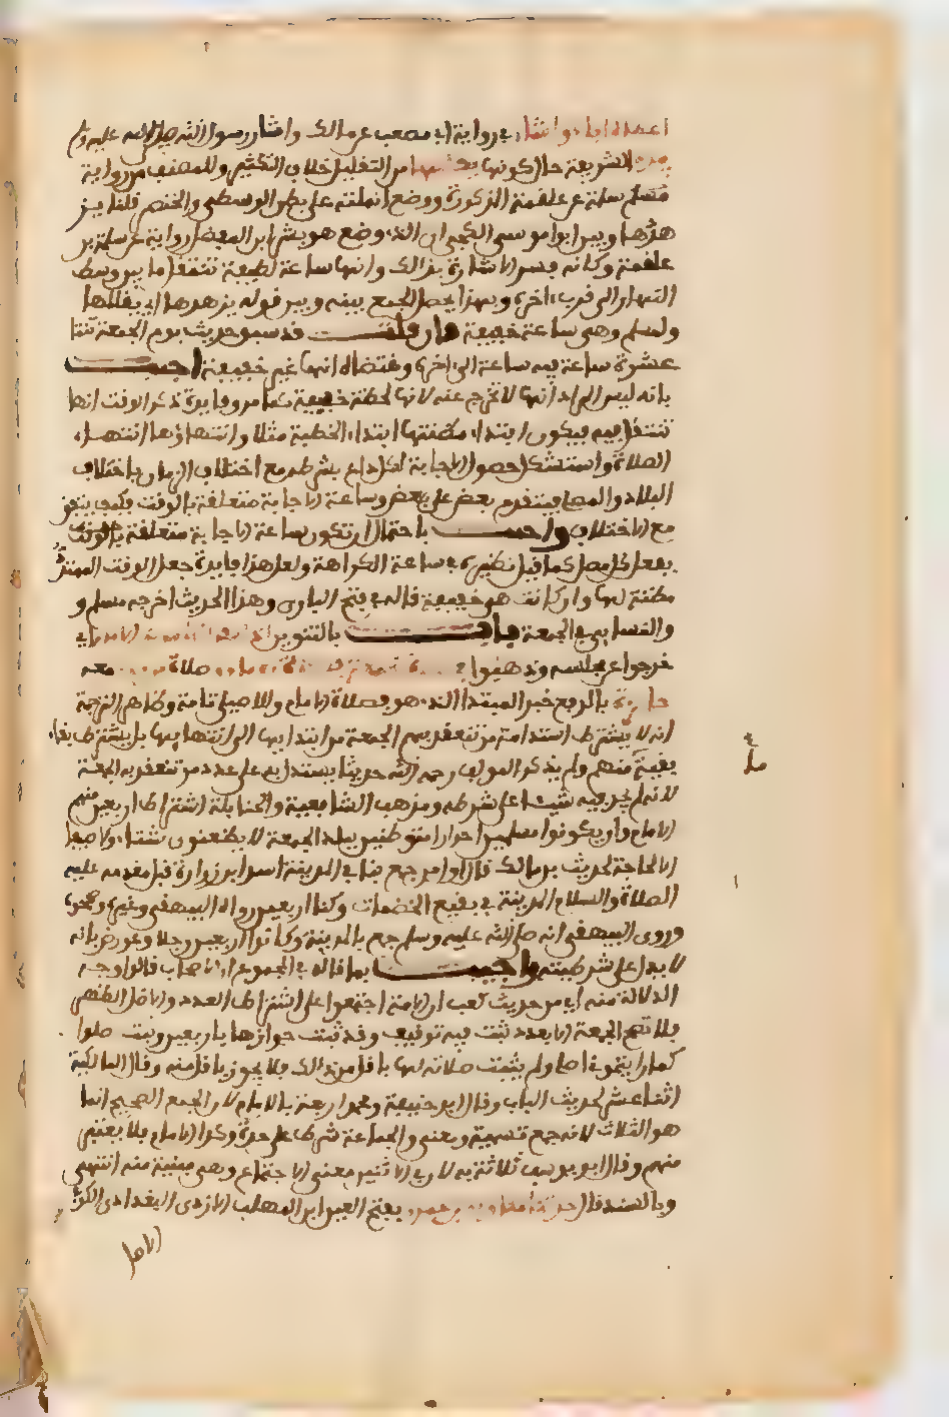 اعطاه اياه واشار في رواية ابي مصعب عن مالك واشار رسول الله صلى الله عليه وسلم
بيده الشريفة حال كونها يقللها من التقليل خلاف التكثير وللمصنف من رواية
سلمة بن علقمة المذكورة ووضع انملته على بطن الوسطى والخنصر قلنا يز
هدها وبين ابو مو سى الكجي ان الذي وضع هو بشر ابن المفضل رواية عن سلمة بن
علقمة وكانه فسر الاشارة بذالك وانها ساعة لطيفة تنتقل ما بين وسط
النهار الى قرب اخره وبهذا يحصل الجمع بينه وبين قوله يزهدها اي يقللها
ولمسلم وهي ساعة خفيفة فان قلت قد سبق حديث يوم الجمعة ثنتا
عشرة ساعة فيه ساعة الى اخره ومقتضاه انها غير خفيفة اجيب
بانه ليس المراد انها لا تخرج عنه لانها لحظة خفيفة كما مر وفايدة ذكر الوقت انها
تنتقل فيه فيكون ابتداء مظنتها ابتداء الخطبة مثلا وانتهاؤها انتهاء
الصلاة واستشكل حصول الاجابة لكل داع بشرطه مع اختلاف الزمان باختلاف
البلاد والمصلي فيتقدم بعض على بعض وساعة الاجابة متعلقة بالوقت فكيف يتفق
مع الاختلاف واجيب باحتمال ان تكون ساعة الاجابة متعلقة بالوقت
بفعل كل مصل كما قيل نظيره في ساعة الكراهة ولعل هذا فايدة جعل الوقت الممتد
مظنة لها وان كانت هو خفيفة قاله في فتح الباري وهذا الحديث اخرجه مسلم و
والنسايي في الجمعة باب بالتنوين
خرجوا عن مجلسه وذهبوا صلاة معه
جايزة بالرفع خبر المبتدا الذي هو فصلاة الامام وللاصيلي تامة وظاهر الترجمة
انه لا يشترط استدامة من تنعقد بهم الجمعة من ابتدايها الى انتهايها بل يشترط بقاء
بقية منهم ولم يذكر المولف رحمه الله حديثا يستدل به على عدد من تنعقد به الجمعة
لانه لم يجد فيه شيئا على شرطه ومذهب الشافعية والحنابلة اشتراط اربعين منهم
الامام وان يكونوا مسلمين احرارا متوطنين ببلد الجمعة لا يظعنون شتاء ولا صيفا
الا لحاجة لحديث بن مالك قال اول من جمع بنا في المدينة اسعد ابن زرارة قبل مقدمه عليه
الصلاة والسلام المدينة في بقيع الخضمات وكنا اربعين رواه البيهقي وغيره وصححوه
وروى البيهقي انه صلى الله عليه وسلم جمع بالمدينة وكانوا اربعين رجلا وعورض بانه
لا يدل على شرطيته واجيب بما قاله في المجموع ان الاصحاب قالوا وجه
الدلالة منه اي من حديث كعب ان الامة اجمعوا على اشتراط العدد والاصل الظهر
فلا تصح الجمعة الا بعدد ثبت فيه توقيف وقد ثبت جوازها باربعين وثبت صلوا
كما رايتموني اصلي ولم يثبت صلاته لها باقل من ذالك فلا يجوز باقل منه وقال المالكية
اثنا عشر لحديث الباب وقال ابو حنيفة ومحمد اربعة بالامام لان الجمع الصحيح انما
هو الثلاث لانه جمع تسمية ومعنى والجماعة شرط على حدة وكذا الامام فلا يعتبر
منهم وقال ابو يوسف ثلاثة به لان في الاثنين معنى الاجتماع وهي مبنية منه انتهى
وبالسند قال حدثنا معاوية بن عمرو بفتح العين ابن المهلب الازدي البغدادي الكو